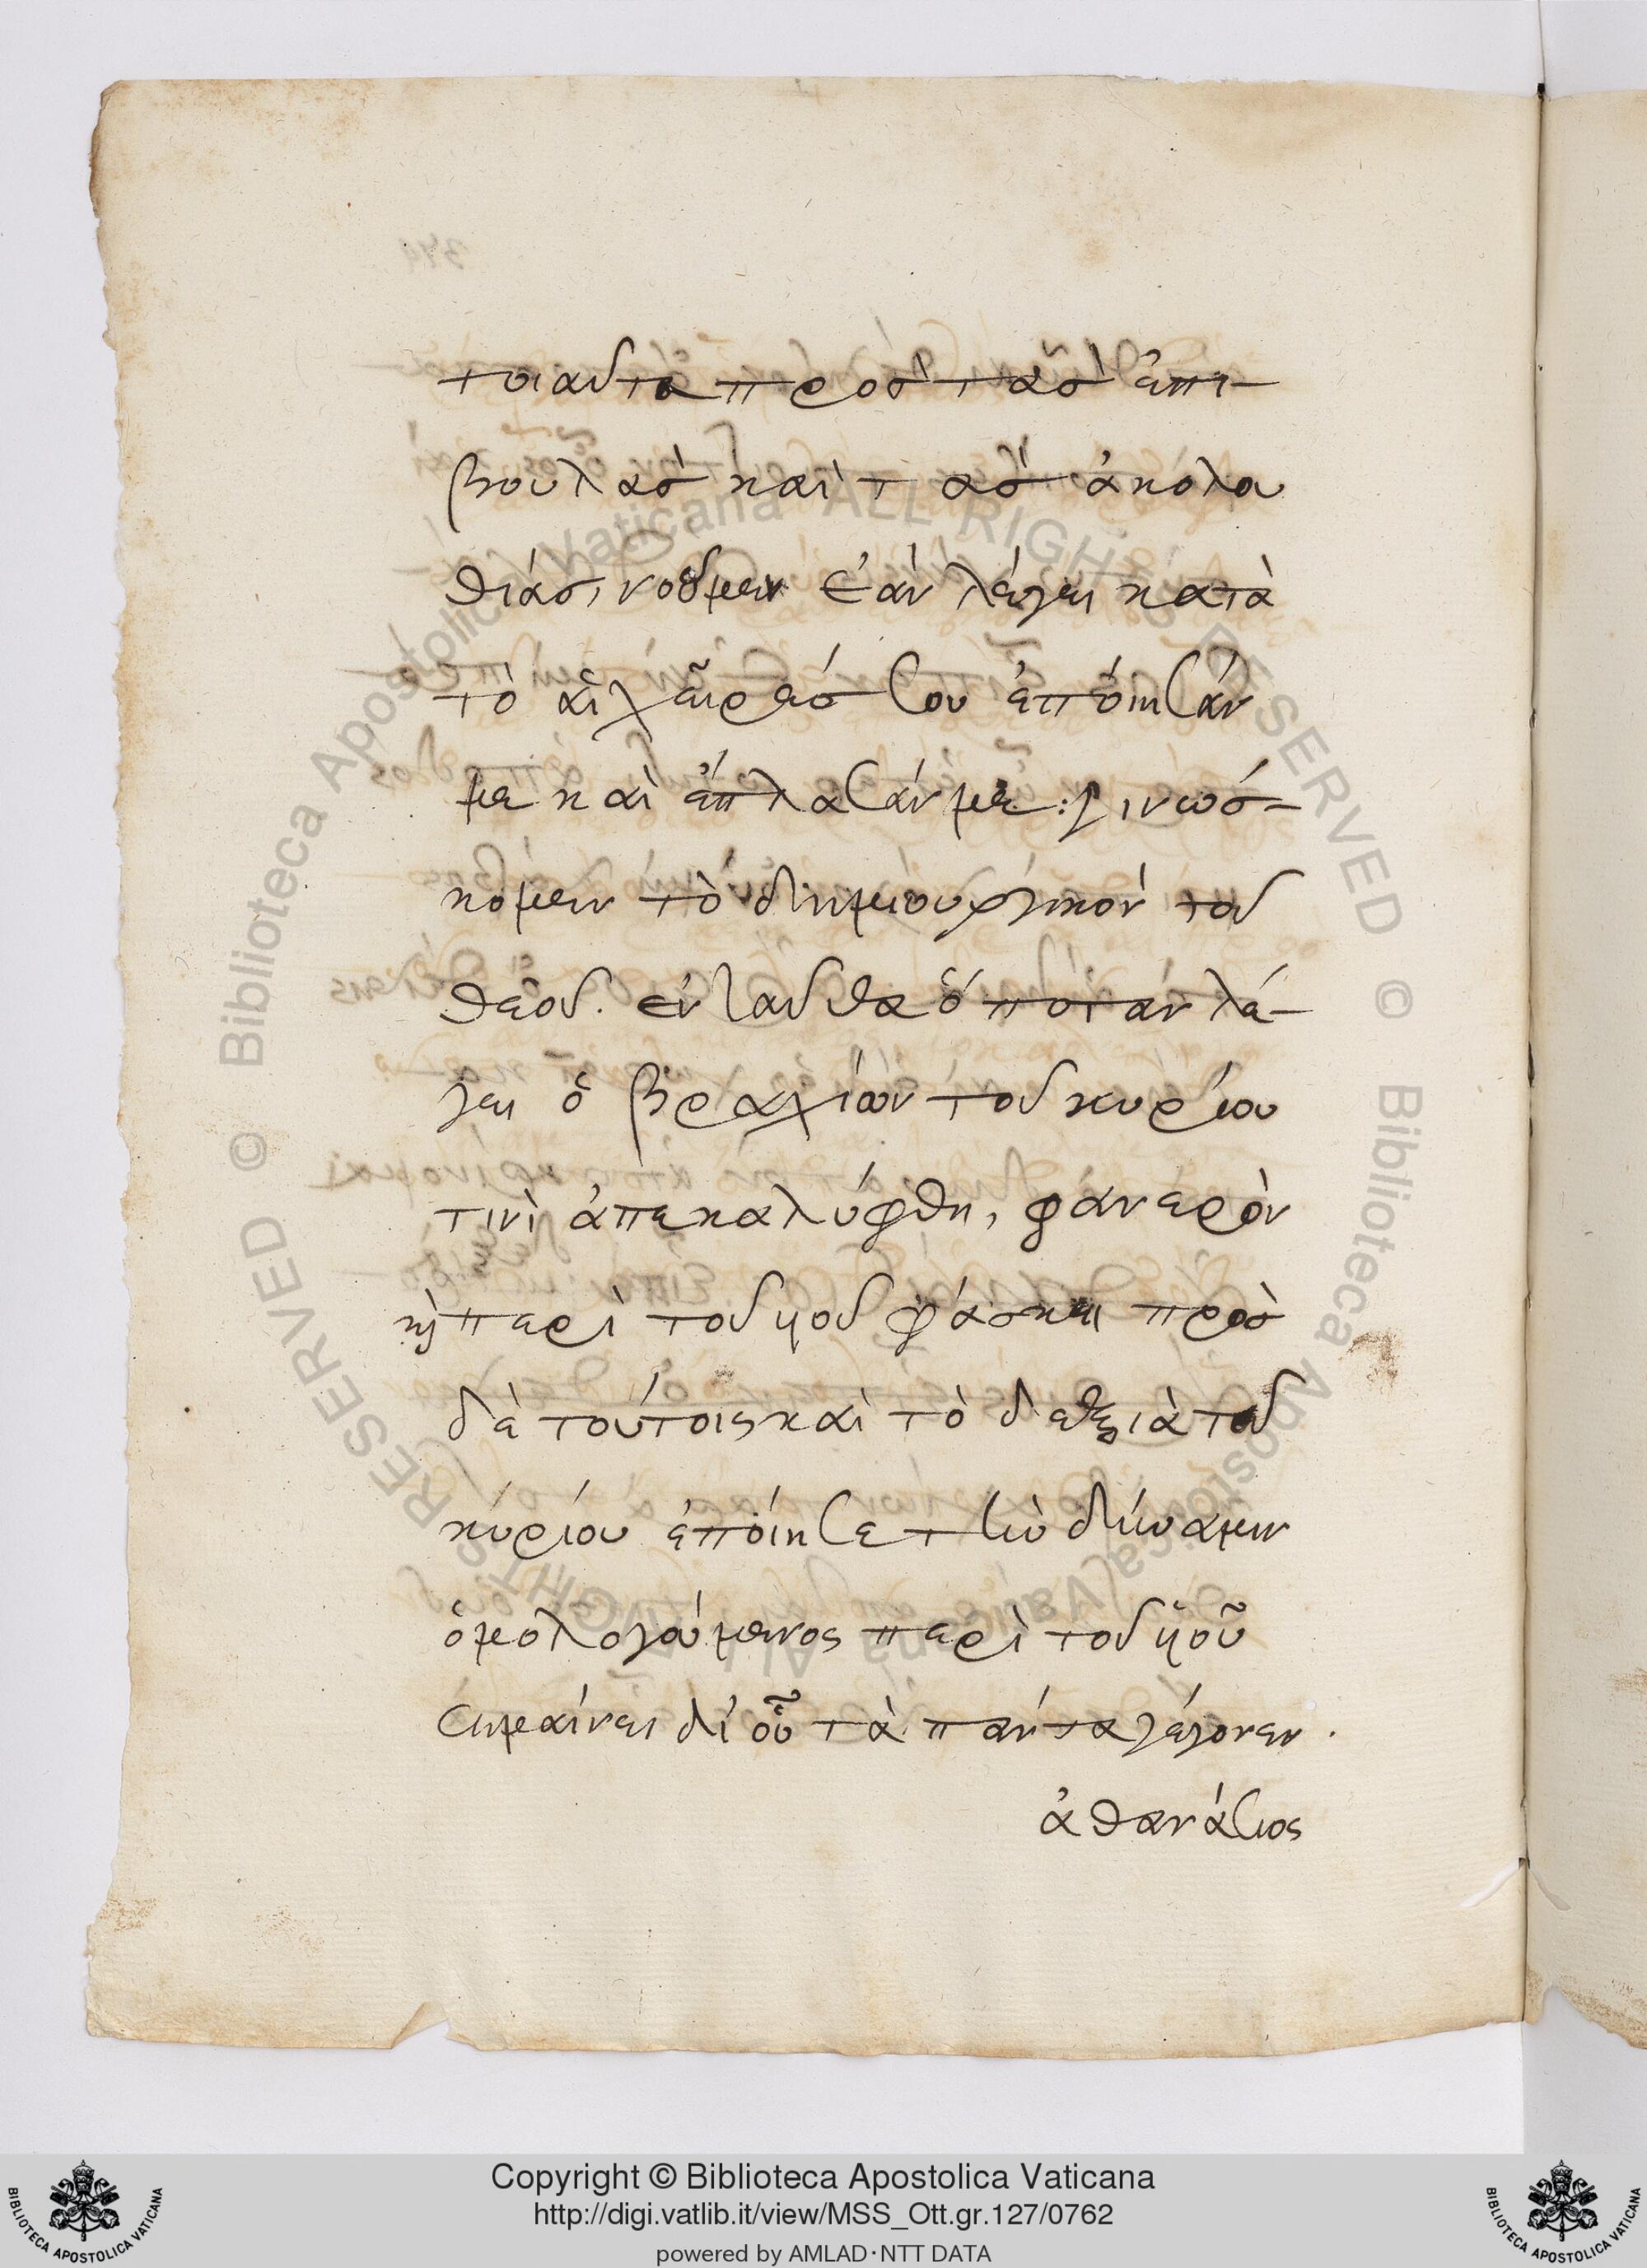 τοιαῦτα πρὸς τὰς ἐπι-
βουλὰς καὶ τὰς ἀκολου
θίας, νοῦμεν ἐὰν λέγει κατὰ
τὸ αἱ χεῖρές σου ἐποίησάν
με καὶ ἔπλασάν με: γινώσ-
κομεν τὸ δημιουργικὸν τοῦ
θεοῦ. ἐνταῦθα ὅποταν λέ-
γει ὁ βραχίων τοῦ κυρίου
τινὶ ἀπεκαλύφθη, φανερὸν
κὴ περὶ τοῦ ὑοῦ φάσκει πρὸς
δὲ τούτοις καὶ τὸ δεξιὰ τοῦ
κύριου ἐποίησε τὴν δύναμιν
ὁμολογούμενος περὶ τοῦ ὑοῦ
σημαίνει δι οὗ τὰ πάντα γέγονεν.
ἀθανάσιος
Copyright © Biblioteca Apostolica Vaticana
http://digi.vatlib.it/view/MSS_Ott.gr.127/0762
powered by AMLAD·NTT DATA
BIBLIOTECA APOSTOLICA VATICANA
BIBLIOTECA APOSTOLICA VATICANA
© Biblioteca Apostolica Vaticana ALL RIGHTS RESERVED © Biblioteca Apostolica Vaticana ALL RIGHTS RESERVED